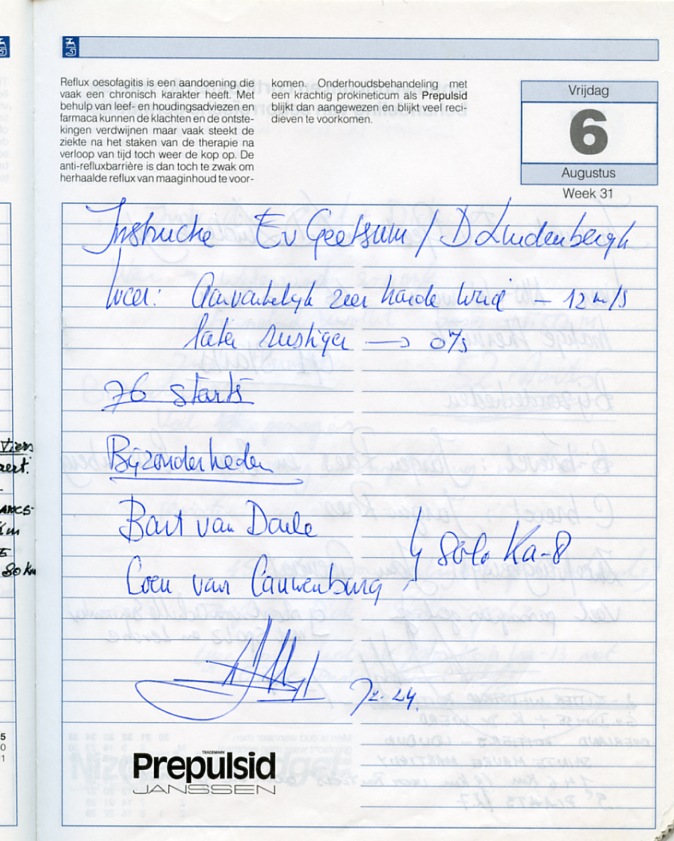 Reflux oesofagitis is een aandoening die
vaak een chronisch karakter heeft. Met
behulp van leef- en houdingsadviezen en
farmaca kunnen de klachten en de ontste-
kingen verdwijnen maar vaak steekt de
ziekte na het staken van de therapie na
verloop van tijd toch weer de kop op. De
anti-refluxbarrière is dan toch te zwak om
herhaalde reflux van maaginhoud te voor-
komen. Onderhoudsbehandeling met
een krachtig prokineticum als Prepulsid
blijkt dan aangewezen en blijkt veel reci-
dieven te voorkomen.
Vrijdag
6
Augustus
Week 31
Instructie Ev Geetsum / D Lindenbergh
Weer: Aanvankelijk zeer harde wind - 12 m/s
later rustiger → 0 m/s
76 starts
Bijzonderheden
Bart van Daele
Coen van Cauwenburg
solo Ka-8
TRADEMARK
Prepulsid
JANSSEN